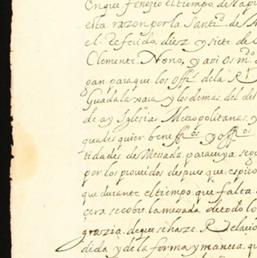 En que fenecio el tiempo de la pr
esta razon por la Sant.d de S
el deferido, diez y siete de
Clemente Nono, y ani os m
gan para que los offi.s de la R
Guadalaxara, y los demas del de
de ay Iglesias Metropolitanas, y
quales quier benefi.os y offi.os
tidades de Messada para cuya seg
por los proveidos despues que espiro
que durante el tiempo, que falta
cera se cobre la mesada, de todo lo
grazia, de que se har se Relacio
dida, y de la forma y manera, que